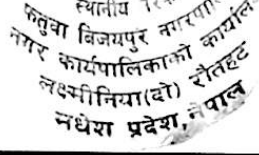 स्थानीय
फतुवा विजयपुर नगरपा
नगर कार्यपालिकाको कार्याल
लक्ष्मीनिया(दो) रौतहट
मधेश प्रदेश, नेपाल